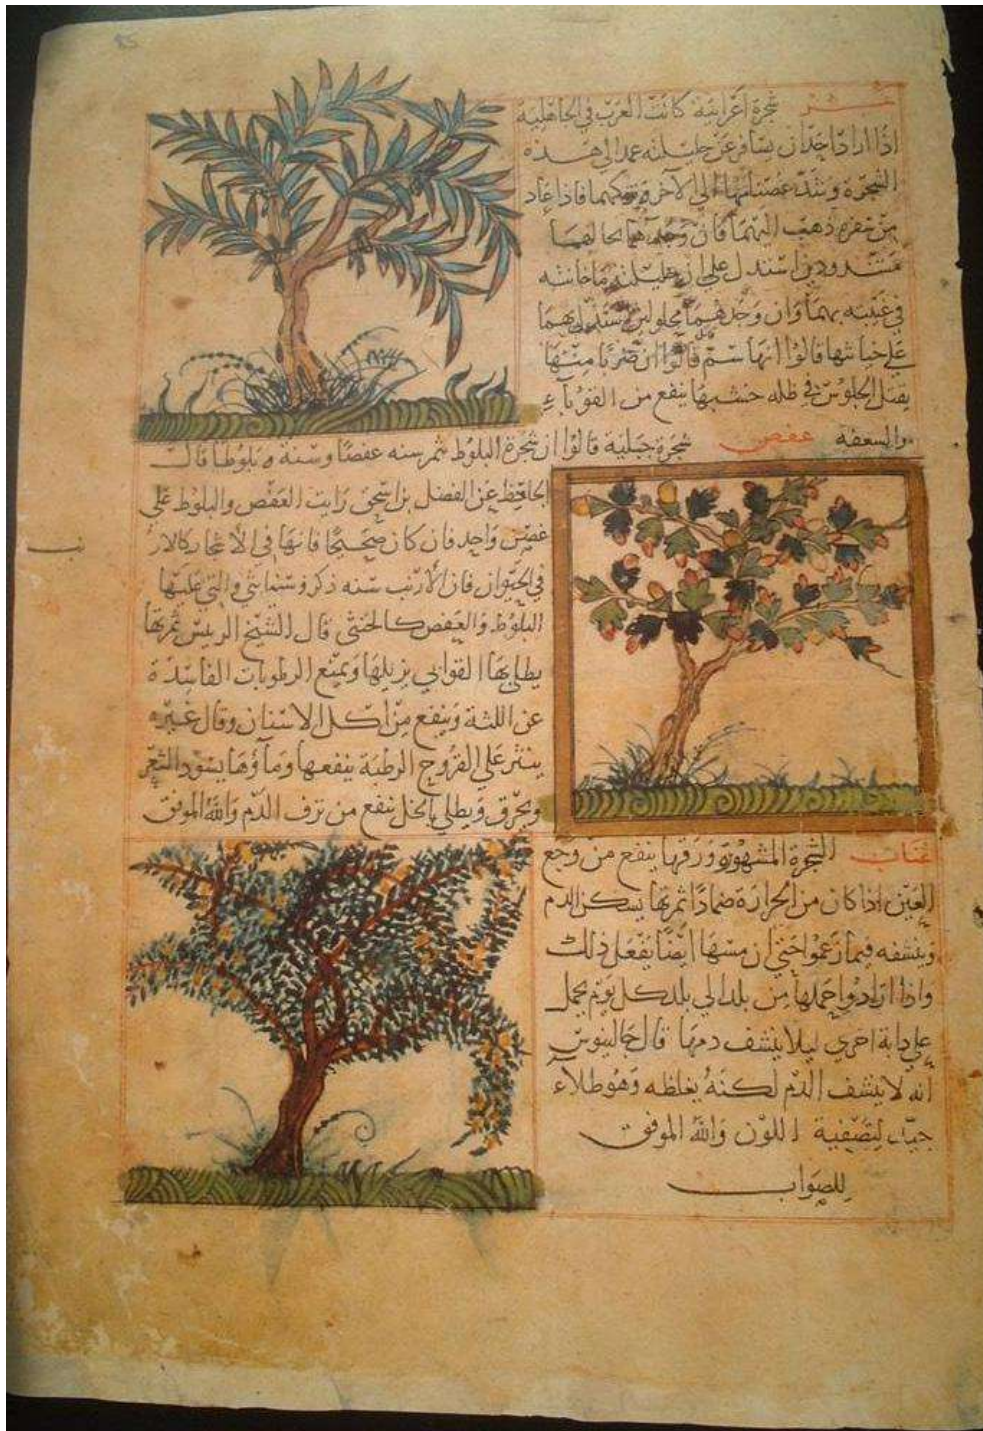 شجرة اعرابية كانت العرب في الجاهلية
اذا اراد احد ان يسافر عن حليلته عمد الى هذه
الشجرة وشد غصنا منها الى الاخر فاذا عاد
من سفره ذهب اليهما فان وجدهما بحالهما
مشدودين استدل على ان حليلته ما خانته
في غيبته بهما وان وجدهما محلولين استدل بهما
على خيانتها قالوا انها سم قالوا ان ضربا منها
يقتل الجلوس في ظله خشبها ينفع من القوباء
والسعفة عفص شجرة جبلية قالوا ان شجرة البلوط تثمر سنه عفصا وسنة بلوطا قال
الجاحظ عن الفضل بن اسحق رايت العفص والبلوط على
غصن واحد فان كان صحيحا فانها في الاشجار كالارنب
في الحيوان فان الارنب سنه ذكر وسنة انثى والتي عليها
البلوط والعفص كالخنثى قال الشيخ الرئيس ثمرتها
يطلى بها القوابي يزيلها ويمنع الرطوبات الفاسدة
عن اللثة وينفع من اكل الاسنان وقال غيره
ينثر على القروح الرطبة ينفعها وماؤها يسود الشعر
ويحرق ويطلى بالخل ينفع من نزف الدم والله الموفق
عناب الشجرة المشهورة ورقها ينفع من وجع
العين اذا كان من الحرارة ضمادا ثمرتها يسكن الدم
وينشفه فيما زعموا حتى ان مسها ايضا يفعل ذلك
واذا ارادوا حملها من بلد الى بلد كل يوم يحمل
على دابة اخرى ليلا ينشف دمها قال جالينوس
انه لا ينشف الدم لكنه يغلظه وهو طلاء
جيد لتصفية اللون والله الموفق
للصواب